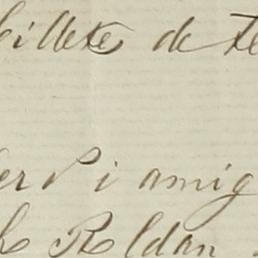 billete de te
er S i amig
Roldan.